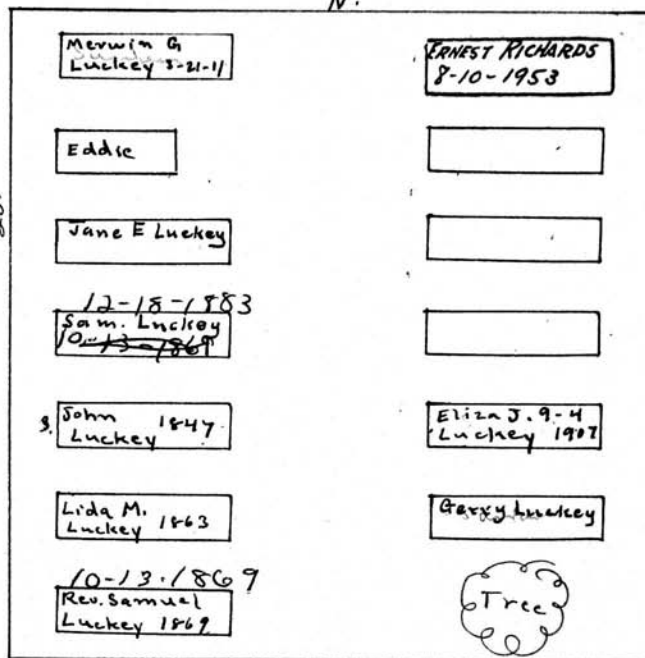 N.
Merwin G
Luckey 3-21-11
Eddie
Jane E Luckey
12-18-1883
Sam. Luckey
10-13-1869
S. John 1847
Luckey
Lida M.
Luckey 1863
10-13-1869
Rev. Samuel
Luckey 1869
ERNEST RICHARDS
8-10-1953
Eliza J. 9-4
Luckey 1907
Gerry Luckey
Tree